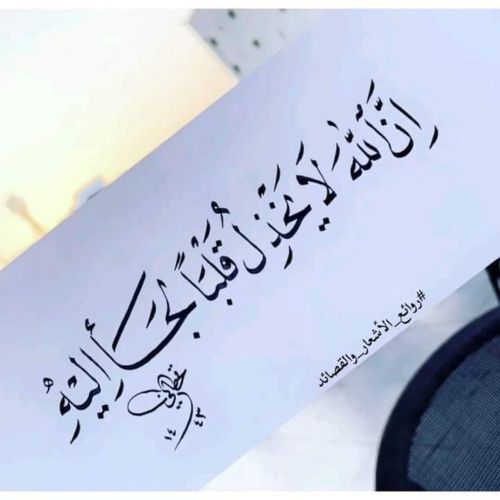 إنَّ اللَّهَ لَا يَخْذِلُ قَلْبًا لَجَأَ إليْهِ
١٤٤٣
#روائع_الأشعار_والقصائد